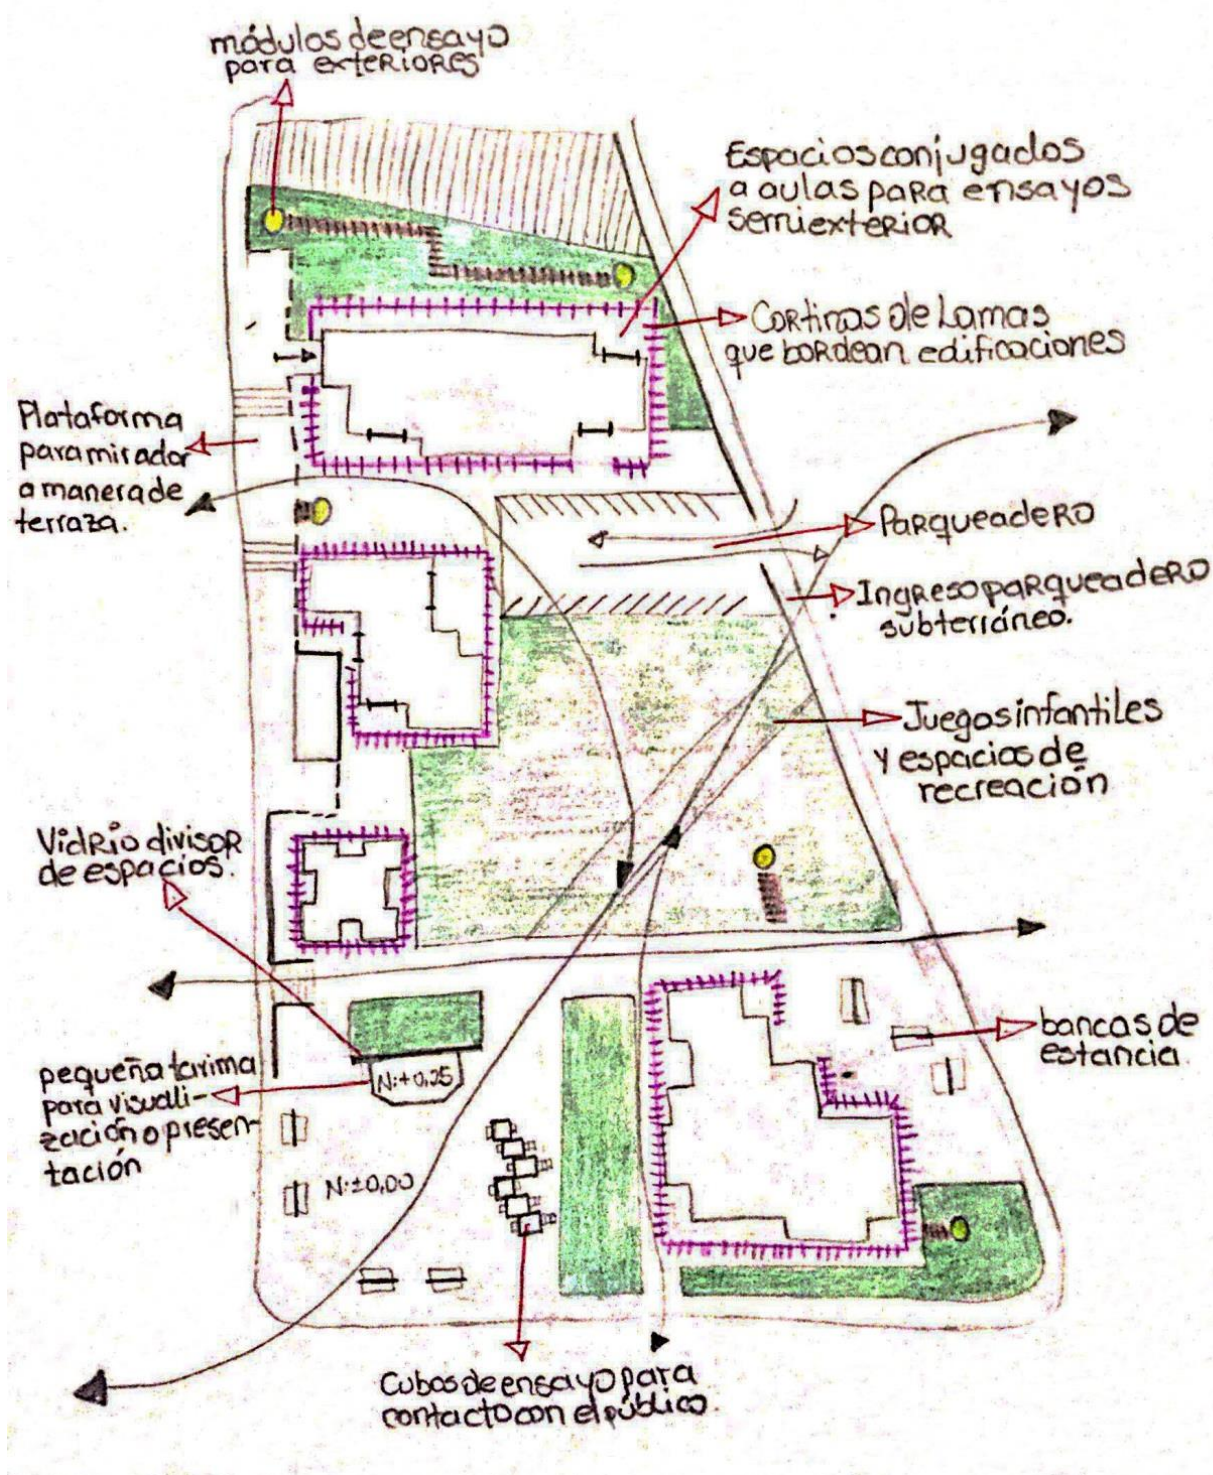 módulos de ensayo
para exteriores
Espacios conjugados
a aulas para ensayos
semiexterior
Cortinas de Lamas
que bordean edificaciones
Plataforma
para mirador
a manera de
terraza.
Parqueadero
Ingreso parqueadero
subterráneo.
Juegos infantiles
y espacios de
recreación
Vidrio divisor
de espacios.
bancas de
estancia.
pequeña tarima
para visuali-
zación o presen-
tación
N:+0,25
N:±0,00
Cubos de ensayo para
contacto con el público.